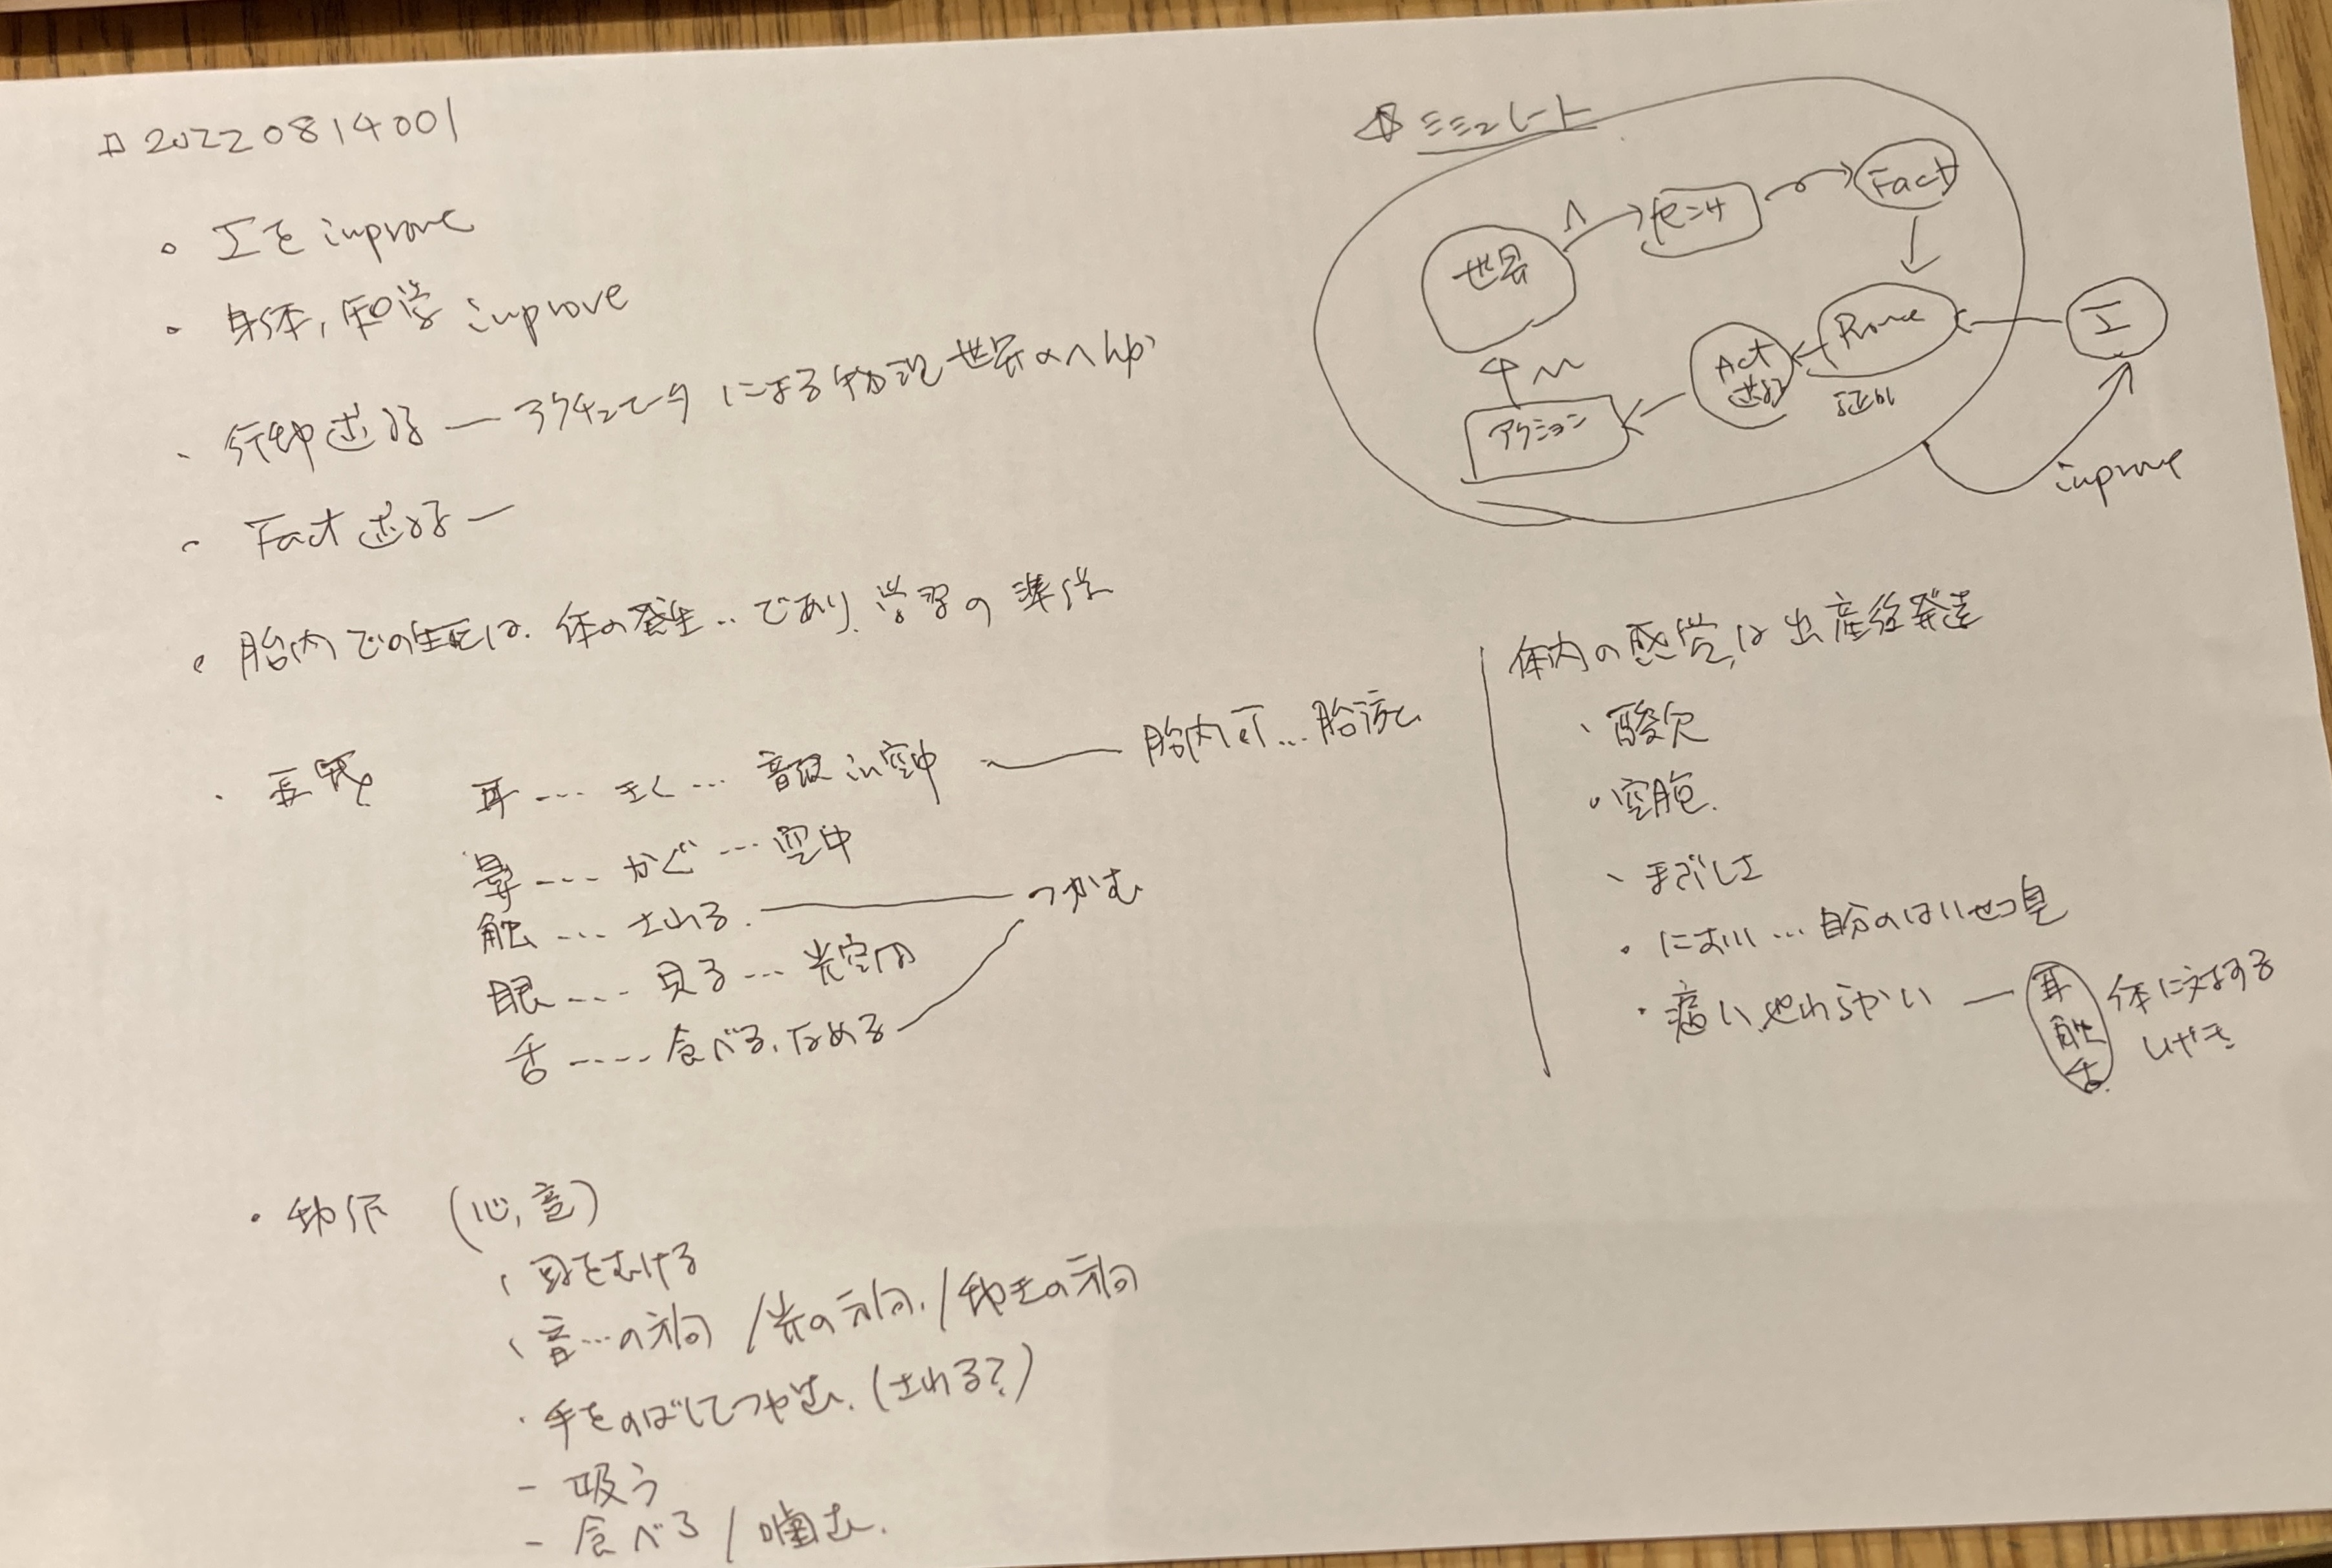 20220814001
・Σを improve
・身体, 知覚 improve
・行動述語 — アクチュエータ による 物理世界の
・Fact 述語 —
・胎内での生死は、体の発生‥であり、学習の準
・五感
耳 --- きく … 音波 in 空中 — 胎内可 … 胎
鼻 --- かぐ … 空中
触 --- さわる — つかむ
眼 --- 見る --- 光空間
舌 ---- 食べる、なめる
・動作 (心, 意)
耳をむける
音…の方向 / 光の方向. / 動きの方向
・手をのばしてつかむ. (さわる?)
- 吸う
- 食べる / 噛む.
シミュレート
世界
センサ
Fact
Prove
証明
Σ
Act
述語
アクション
improve
体内の感覚は出産後発達
・酸欠
・空腹.
、まぶしさ
・におい … 自分のはいせつ臭
・痛い、やわらかい — 耳 触 舌 体に対する
しげき